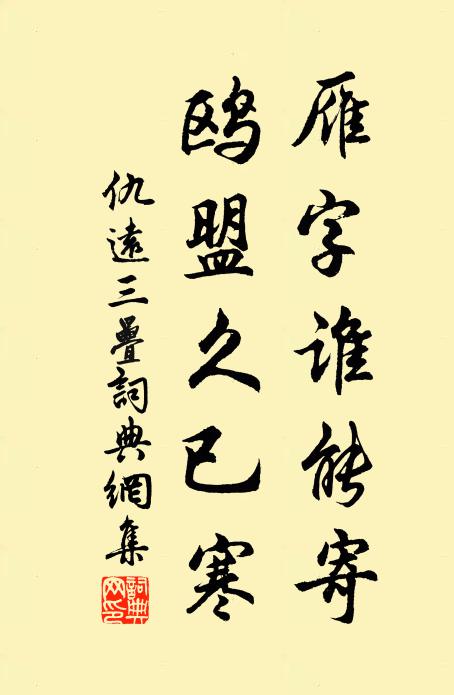 雁字谁能寄
鸥盟久已寒
仇遠三疊詞典網集
詞典网印